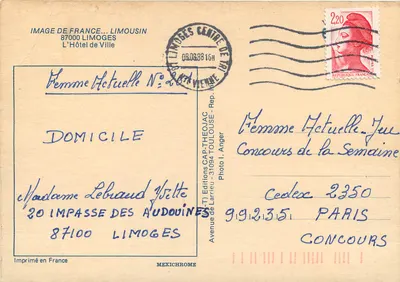 IMAGE DE FRANCE... LIMOUSIN
87000 LIMOGES
L'Hôtel de Ville
87 LIMOGES CENTRE DE TRI
HTE VIENNE
2,20
Femme Actuelle No
DOMICILE
Madame Lebraud Yvette
20 IMPASSE DES AUDOUINES
87100 LIMOGES
Editions CAP-THEOJAC
Avenue de Larrieu - 31094 TOULOUSE - Rep.
Photo I. Anger
Femme Actuelle-Jeu
Concours de la Semaine
Cedex 2350
99235 PARIS
CONCOURS
Imprimé en France
MEXICHROME